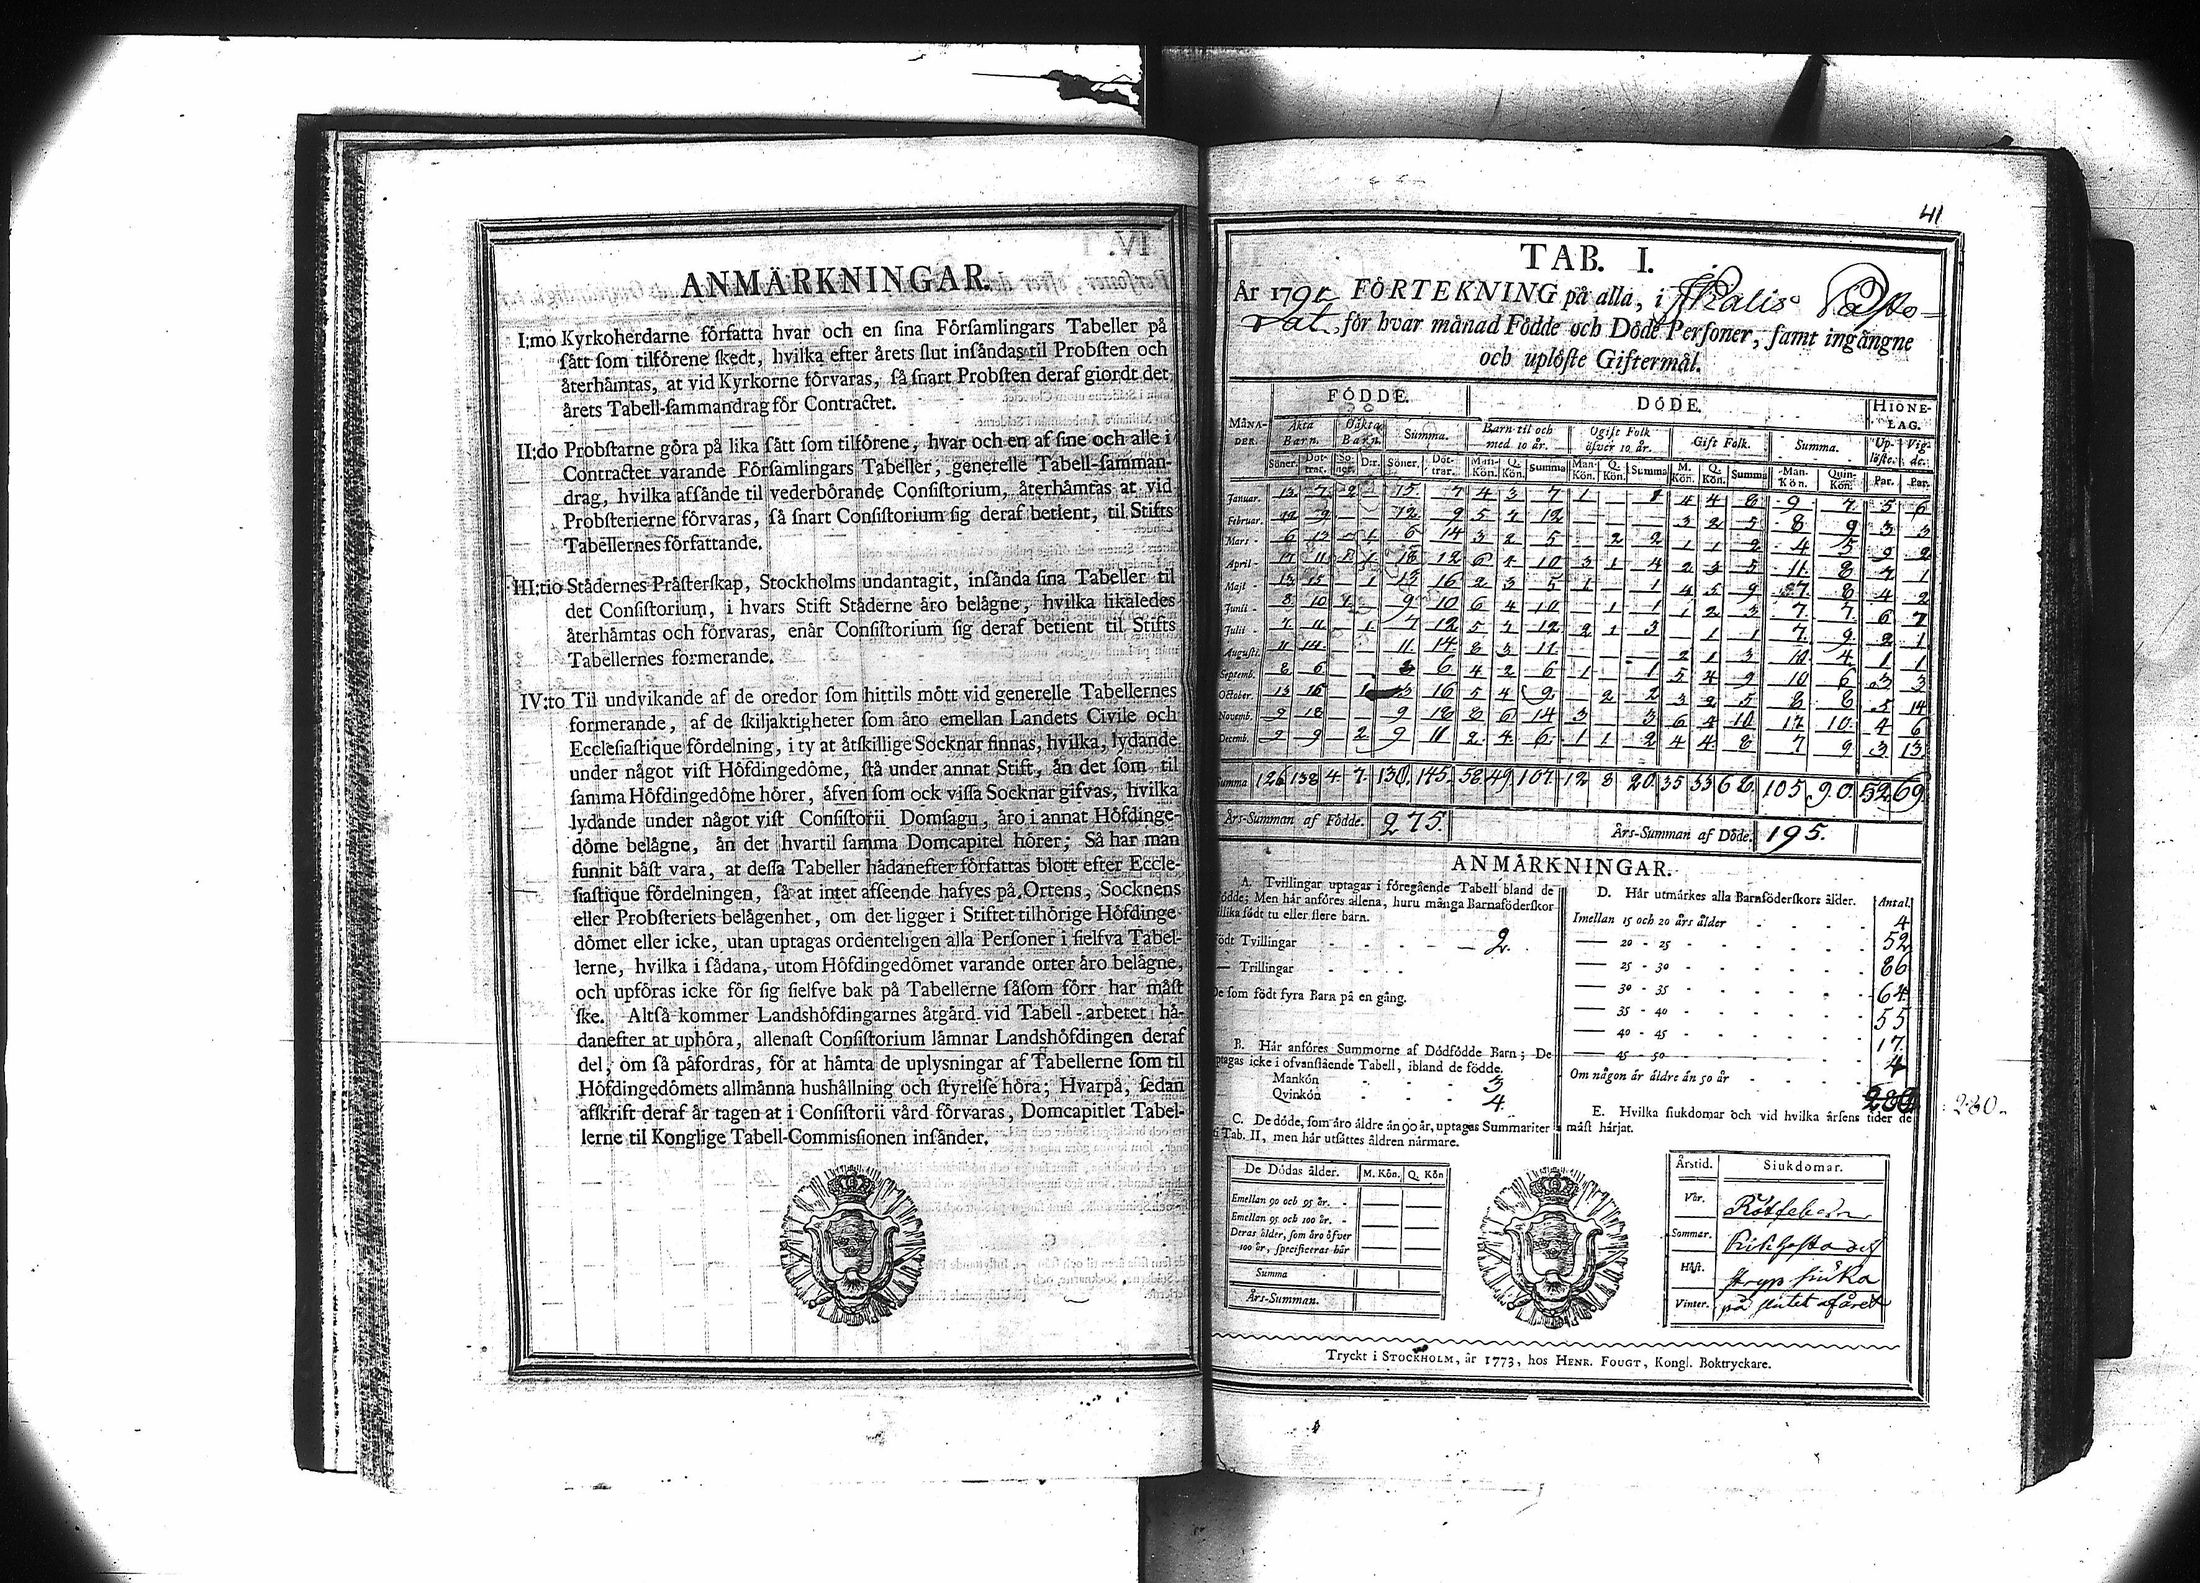 ANMÄRKNINGAR.
I:mo Kyrkoherdarne författa hvar och en sina Församlingars Tabeller på
sätt som tilförene skedt, hvilka efter årets slut insändas til Probsten och
återhämtas, at vid Kyrkorne förvaras, så snart Probsten deraf giordt det
årets Tabell-sammandrag för Contractet.
II:do Probstarne göra på lika sätt som tilförene, hvar och en af sine och alle i
Contractet varande Församlingars Tabeller, generelle Tabell-samman-
drag, hvilka afsände til vederbörande Consistorium, återhämtas at vid
Probsterierne förvaras, så snart Consistorium sig deraf betient, til Stifts
Tabellernes författande.
III:tio Städernes Prästerskap, Stockholms undantagit, insända sina Tabeller til
det Consistorium, i hvars Stift Städerne äro belägne, hvilka likaledes
återhämtas och förvaras, enär Consistorium sig deraf betient til Stifts
Tabellernes formerande.
IV:to Til undvikande af de oredor som hittils mött vid generelle Tabellernes
formerande, af de skiljaktigheter som äro emellan Landets Civile och
Ecclesiastique fördelning, i ty at åtskillige Socknar finnas, hvilka, lydande
under något vist Höfdingedöme, stå under annat Stift, än det som til
samma Höfdingedöme hörer, äfven som ock vissa Socknar gifvas, hvilka
lydande under något vist Consistorii Domsagu, äro i annat Höfdinge-
döme belägne, än det hvartil samma Domcapitel hörer; Så har man
funnit bäst vara, at dessa Tabeller hädanefter författas blott efter Eccle-
siastique fördelningen, så at intet afseende hafves på Ortens, Socknens
eller Probsteriets belägenhet, om det ligger i Stiftet tilhörige Höfdinge-
dömet eller icke, utan uptagas ordenteligen alla Personer i sielfva Tabel-
lerne, hvilka i sådana, utom Höfdingedömet varande orter äro belägne,
och upföras icke för sig sielfve bak på Tabellerne såsom förr har mäst
ske. Altså kommer Landshöfdingarnes åtgärd vid Tabell-arbetet hä-
danefter at uphöra, allenast Consistorium lämnar Landshöfdingen deraf
del, om så påfordras, för at hämta de uplysningar af Tabellerne som til
Höfdingedömets allmänna hushållning och styrelse höra; Hvarpå, sedan
afskrift deraf är tagen at i Consistorii vård förvaras, Domcapitlet Tabel-
lerne til Konglige Tabell-Commissionen insänder.
41
TAB. I.
År 179 FÖRTEKNING på alla, i Kalis Pasto-
rat, för hvar månad Födde och Döde Personer, samt ingångne
och uplöste Giftermål.
FÖDDE. DÖDE. HIONE-
LAG.
MÅNA-
DER. Äkta
Barn. Oäkta
Barn. Summa. Barn til och
med 10 år. Ogift Folk
öfver 10 år. Gift Folk. Summa. Up-
löste. Vig-
de.
Söner. Döt-
trar. Sö-
ner. Dr. Söner. Döt-
trar. Man-
Kön. Q.
Kön. Summa Man-
Kön. Q.
Kön. Summa M.
Kön. Q.
Kön. Summa Man-
Kön. Quin-
Kön. Par. Par.
Januar. 13 7 2 15 7 4 3 7 1 1 4 4 8 9 7 5 6
Februar. 12 9 12 9 5 7 12 3 2 5 8 9 3 3
Mars 6 13 1 6 14 3 2 5 2 2 1 1 2 4 5 9 2
April 17 11 1 18 12 6 4 10 3 1 4 2 3 5 11 8 7 1
Maji 13 15 1 13 16 2 3 5 1 1 4 5 9 7 8 4 2
Junii 8 10 9 10 6 4 10 1 1 1 2 3 7 7 6 7
Julii 7 11 1 7 12 5 7 12 2 1 3 1 1 7 9 2 1
Augusti. 11 14 11 14 8 3 11 2 1 3 10 4 1 1
Septemb. 8 6 8 6 4 2 6 1 1 5 4 9 10 6 3 3
October. 13 15 1 13 16 5 4 9 2 2 3 2 5 8 8 5 14
Novemb. 9 18 9 18 8 6 14 3 3 6 4 10 17 10 4 6
Decemb. 9 9 2 9 11 2 4 6 1 1 2 4 4 8 7 9 3 13
Summa 126 138 4 7 130 145 58 49 107 12 8 20 35 33 68 105 90 52 69
Års-Summan af Födde. 275. Års-Summan af Döde. 195.
ANMÄRKNINGAR.
A. Tvillingar uptagas i föregående Tabell bland de
födde; Men här anföres allena, huru många Barnaföderskor
tillika födt tu eller flere barn.
födt Tvillingar 2.
— Trillingar
De som födt fyra Barn på en gång.
B. Här anföres Summorne af Dödfödde Barn; De
uptagas icke i ofvanstående Tabell, ibland de födde.
Mankön 3
Qvinkön 4.
C. De döde, som äro äldre än 90 år, uptagas Summariter
i Tab. II, men här utsättes åldren närmare.
De Dödas ålder. M. Kön. Q. Kön
Emellan 90 och 95 år.
Emellan 95 och 100 år.
Deras ålder, som äro öfver
100 år, specificeras här
Summa
Års-Summan.
D. Här utmärkes alla Barnföderskors ålder. Antal
Imellan 15 och 20 års ålder 4
— 20 - 25 52
— 25 - 30 86
— 30 - 35 64
— 35 - 40 55
— 40 - 45 17.
— 45 - 50 4
Om någon är äldre än 50 år
280.
E. Hvilka siukdomar och vid hvilka årsens tider de
mäst härjat.
Årstid. Siukdomar.
Vår. Rötfeber
Sommar.
Höst. Stryp siuka
Vinter. på slutet af året
Tryckt i STOCKHOLM, år 1773, hos HENR. FOUGT, Kongl. Boktryckare.